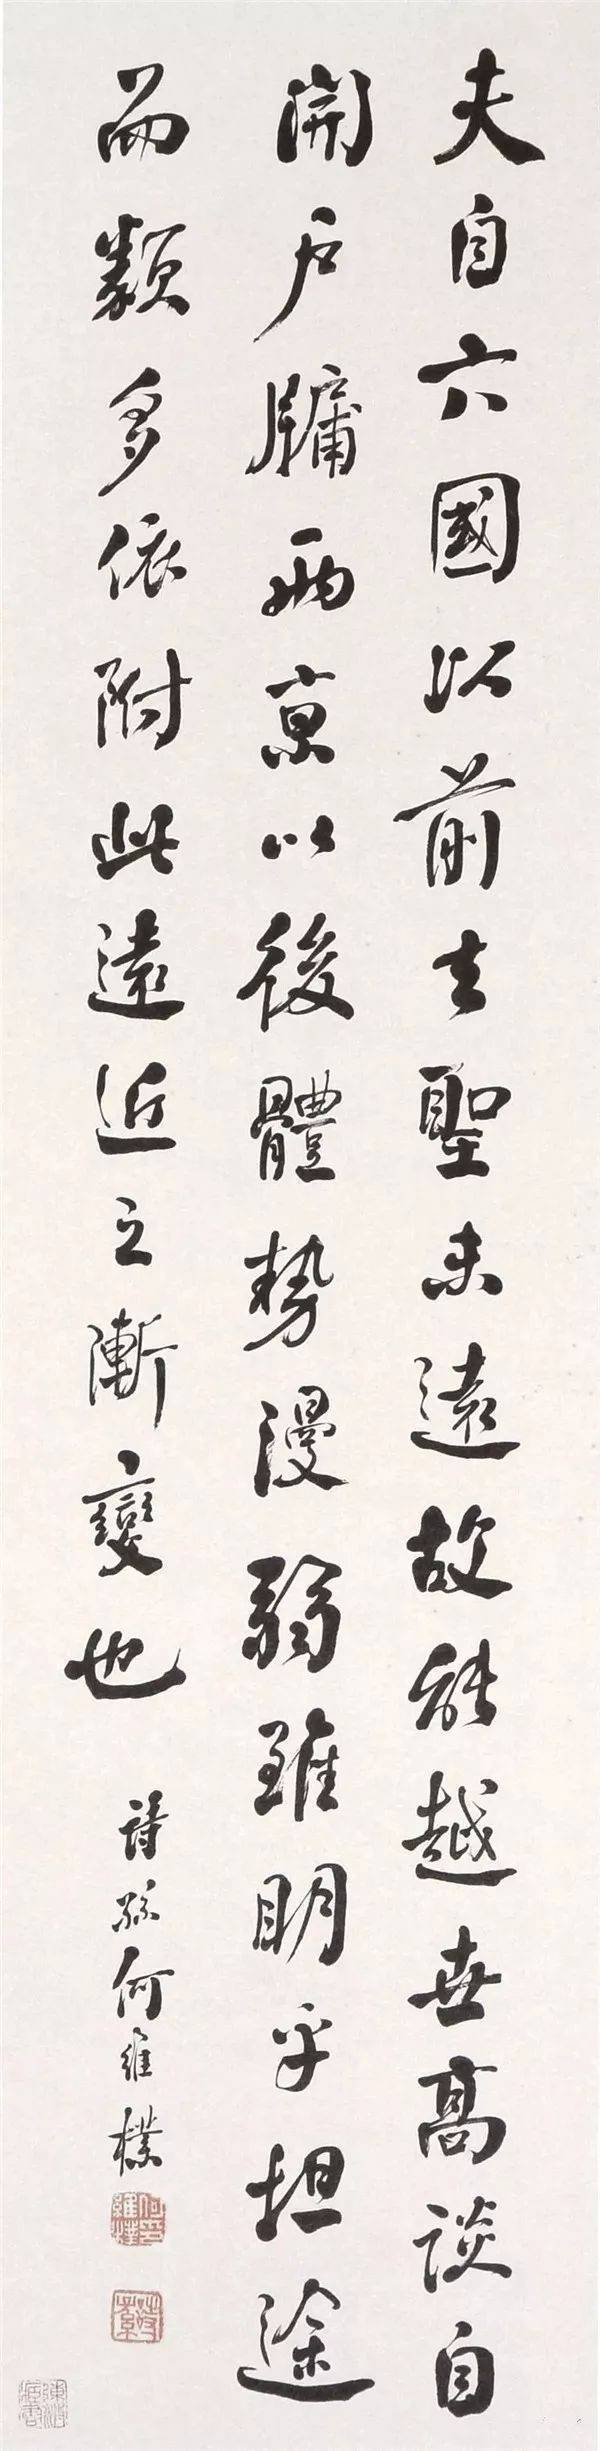 夫自六國以前去聖未遠故能越世高談自
開戶牖兩京以後體勢漫弱雖明乎坦途
而類多依附此遠近之漸變也
詩孫何維樸
何印維樸
詩孫